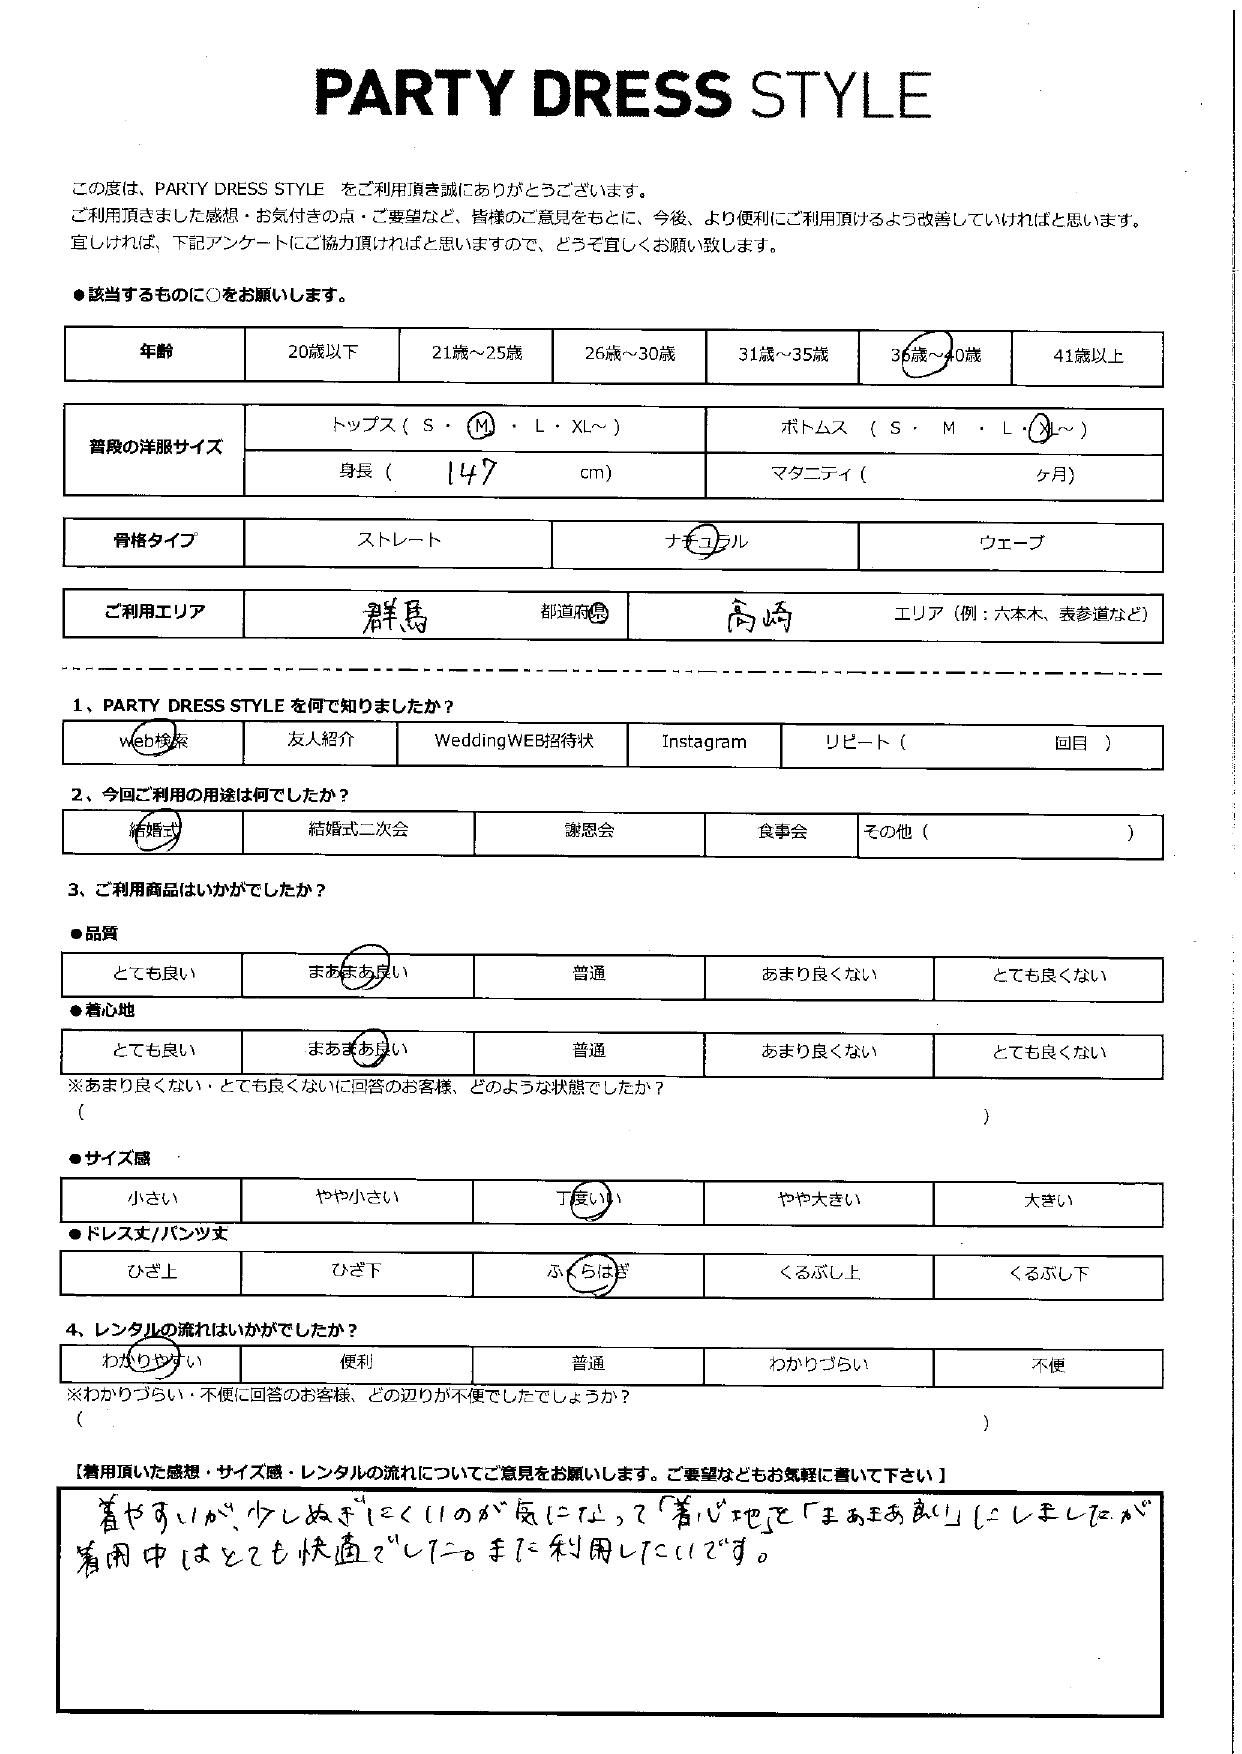 PARTY DRESS STYLE
この度は、PARTY DRESS STYLE をご利用頂き誠にありがとうございます。
ご利用頂きました感想・お気付きの点・ご要望など、皆様のご意見をもとに、今後、より便利にご利用頂けるよう改善していければと思います。
宜しければ、下記アンケートにご協力頂ければと思いますので、どうぞ宜しくお願い致します。
●該当するものに○をお願いします。
年齢 20歳以下 21歳～25歳 26歳～30歳 31歳～35歳 36歳～40歳 41歳以上
普段の洋服サイズ トップス ( S ・ M ・ L ・ XL～ ) ボトムス ( S ・ M ・ L ・ XL～ )
身長 ( 147 cm) マタニティ ( ヶ月)
骨格タイプ ストレート ナチュラル ウェーブ
ご利用エリア 群馬 都道府県 高崎 エリア（例：六本木、表参道など）
1、PARTY DRESS STYLE を何で知りましたか？
web検索 友人紹介 WeddingWEB招待状 Instagram リピート ( 回目 )
2、今回ご利用の用途は何でしたか？
結婚式 結婚式二次会 謝恩会 食事会 その他 ( )
3、ご利用商品はいかがでしたか？
●品質
とても良い まあまあ良い 普通 あまり良くない とても良くない
●着心地
とても良い まあまあ良い 普通 あまり良くない とても良くない
※あまり良くない・とても良くないに回答のお客様、どのような状態でしたか？
( )
●サイズ感
小さい やや小さい 丁度いい やや大きい 大きい
●ドレス丈/パンツ丈
ひざ上 ひざ下 ふくらはぎ くるぶし上 くるぶし下
4、レンタルの流れはいかがでしたか？
わかりやすい 便利 普通 わかりづらい 不便
※わかりづらい・不便に回答のお客様、どの辺りが不便でしたでしょうか？
( )
【着用頂いた感想・サイズ感・レンタルの流れについてご意見をお願いします。ご要望などもお気軽に書いて下さい】
着やすいが、少しぬぎにくいのが気になって「着心地」を「まぁまぁ良い」にしましたが
着用中はとても快適でした。また利用したいです。